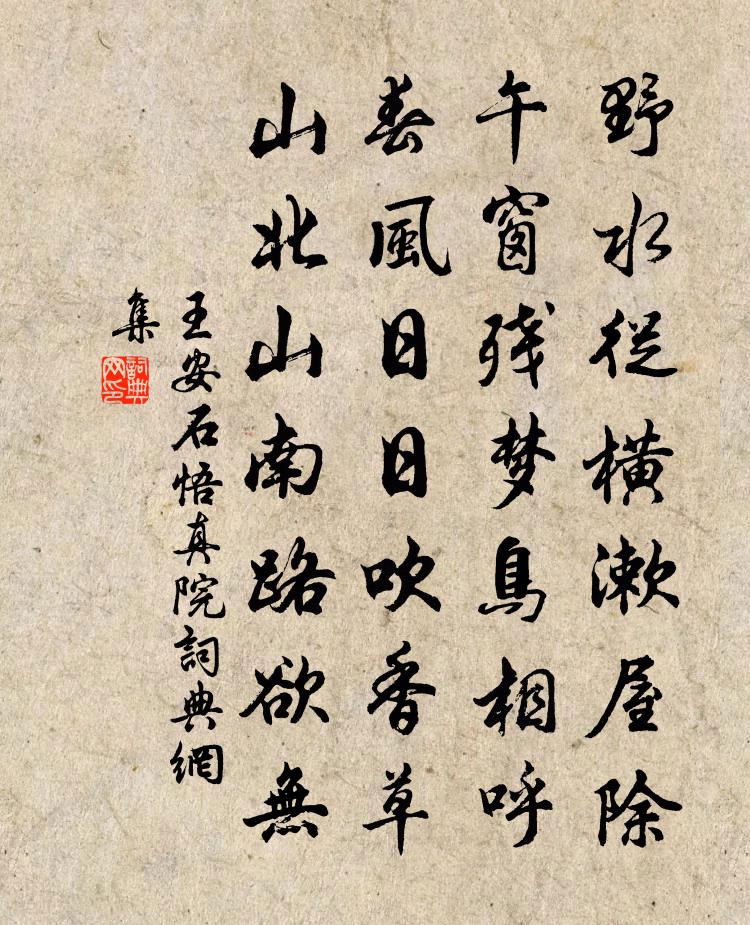 野水從橫漱屋除
午窗残梦鳥相呼
春風日日吹香草
山北山南路欲無
王安石悟真院詞典網
集
詞典
网印